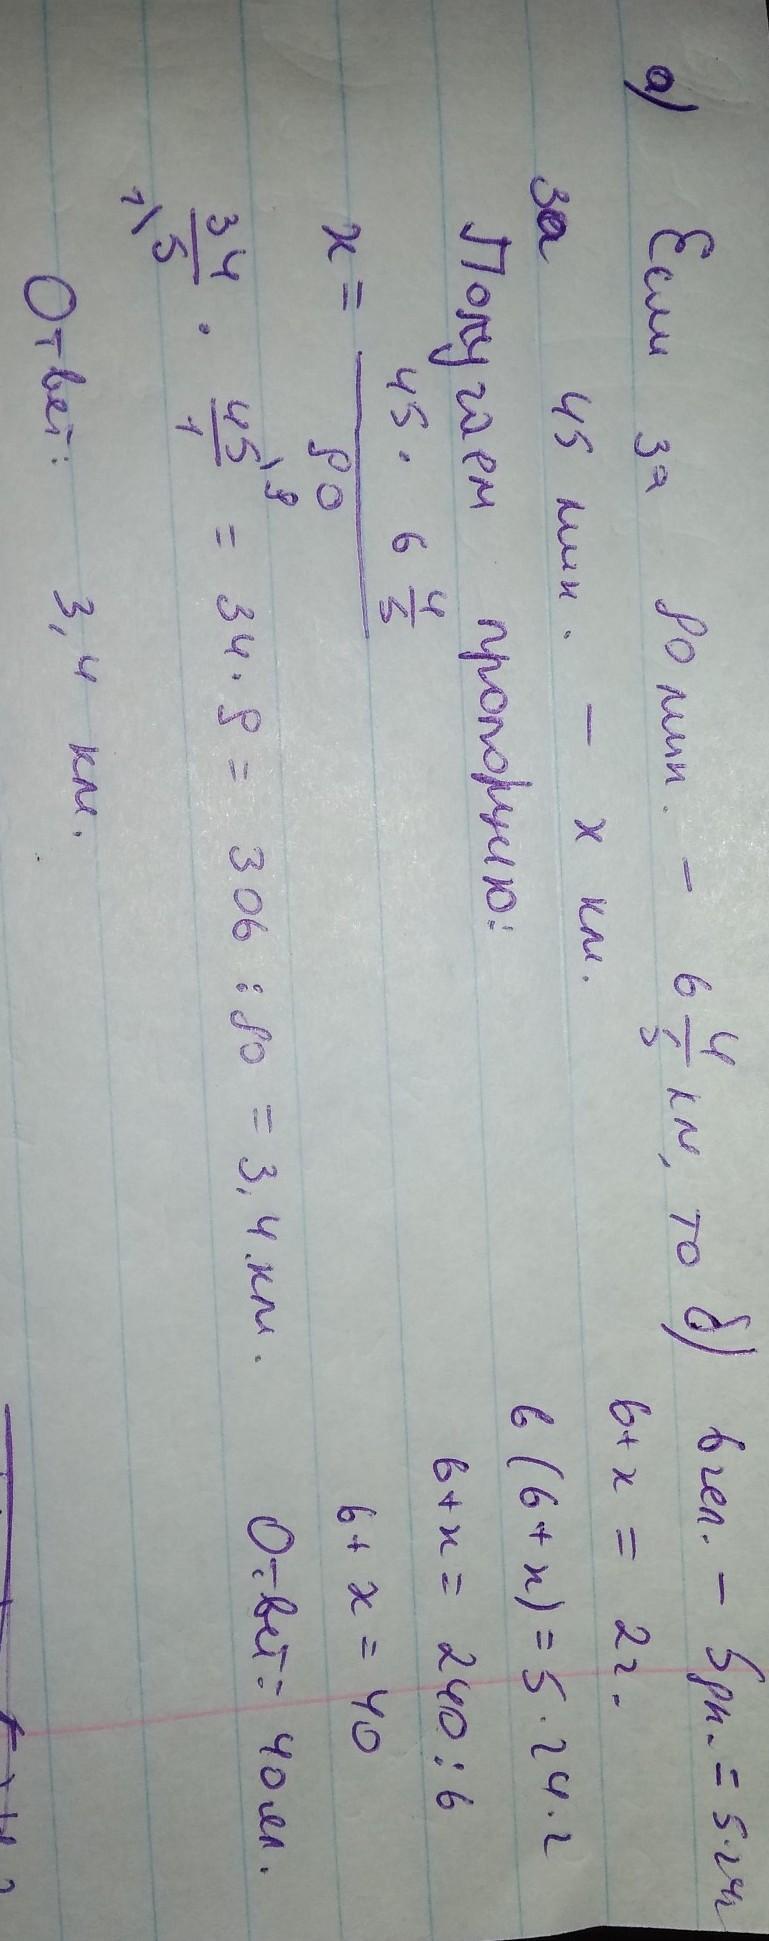 а) Если за 90 мин. – 6 4/5 км, то
за 45 мин. – x км.
Получаем пропорцию:
x = 45 · 6 4/5 / 90
34/5 · 45/1 = 34 · 9 = 306 : 90 = 3,4 км.
Ответ: 3,4 км.
б) 6 чел. – 5 дн. = 5·24ч
6 + x = 2ч.
6 (6 + x) = 5 · 24 · 2
6 + x = 240 : 6
6 + x = 40
Ответ: 40 чел.